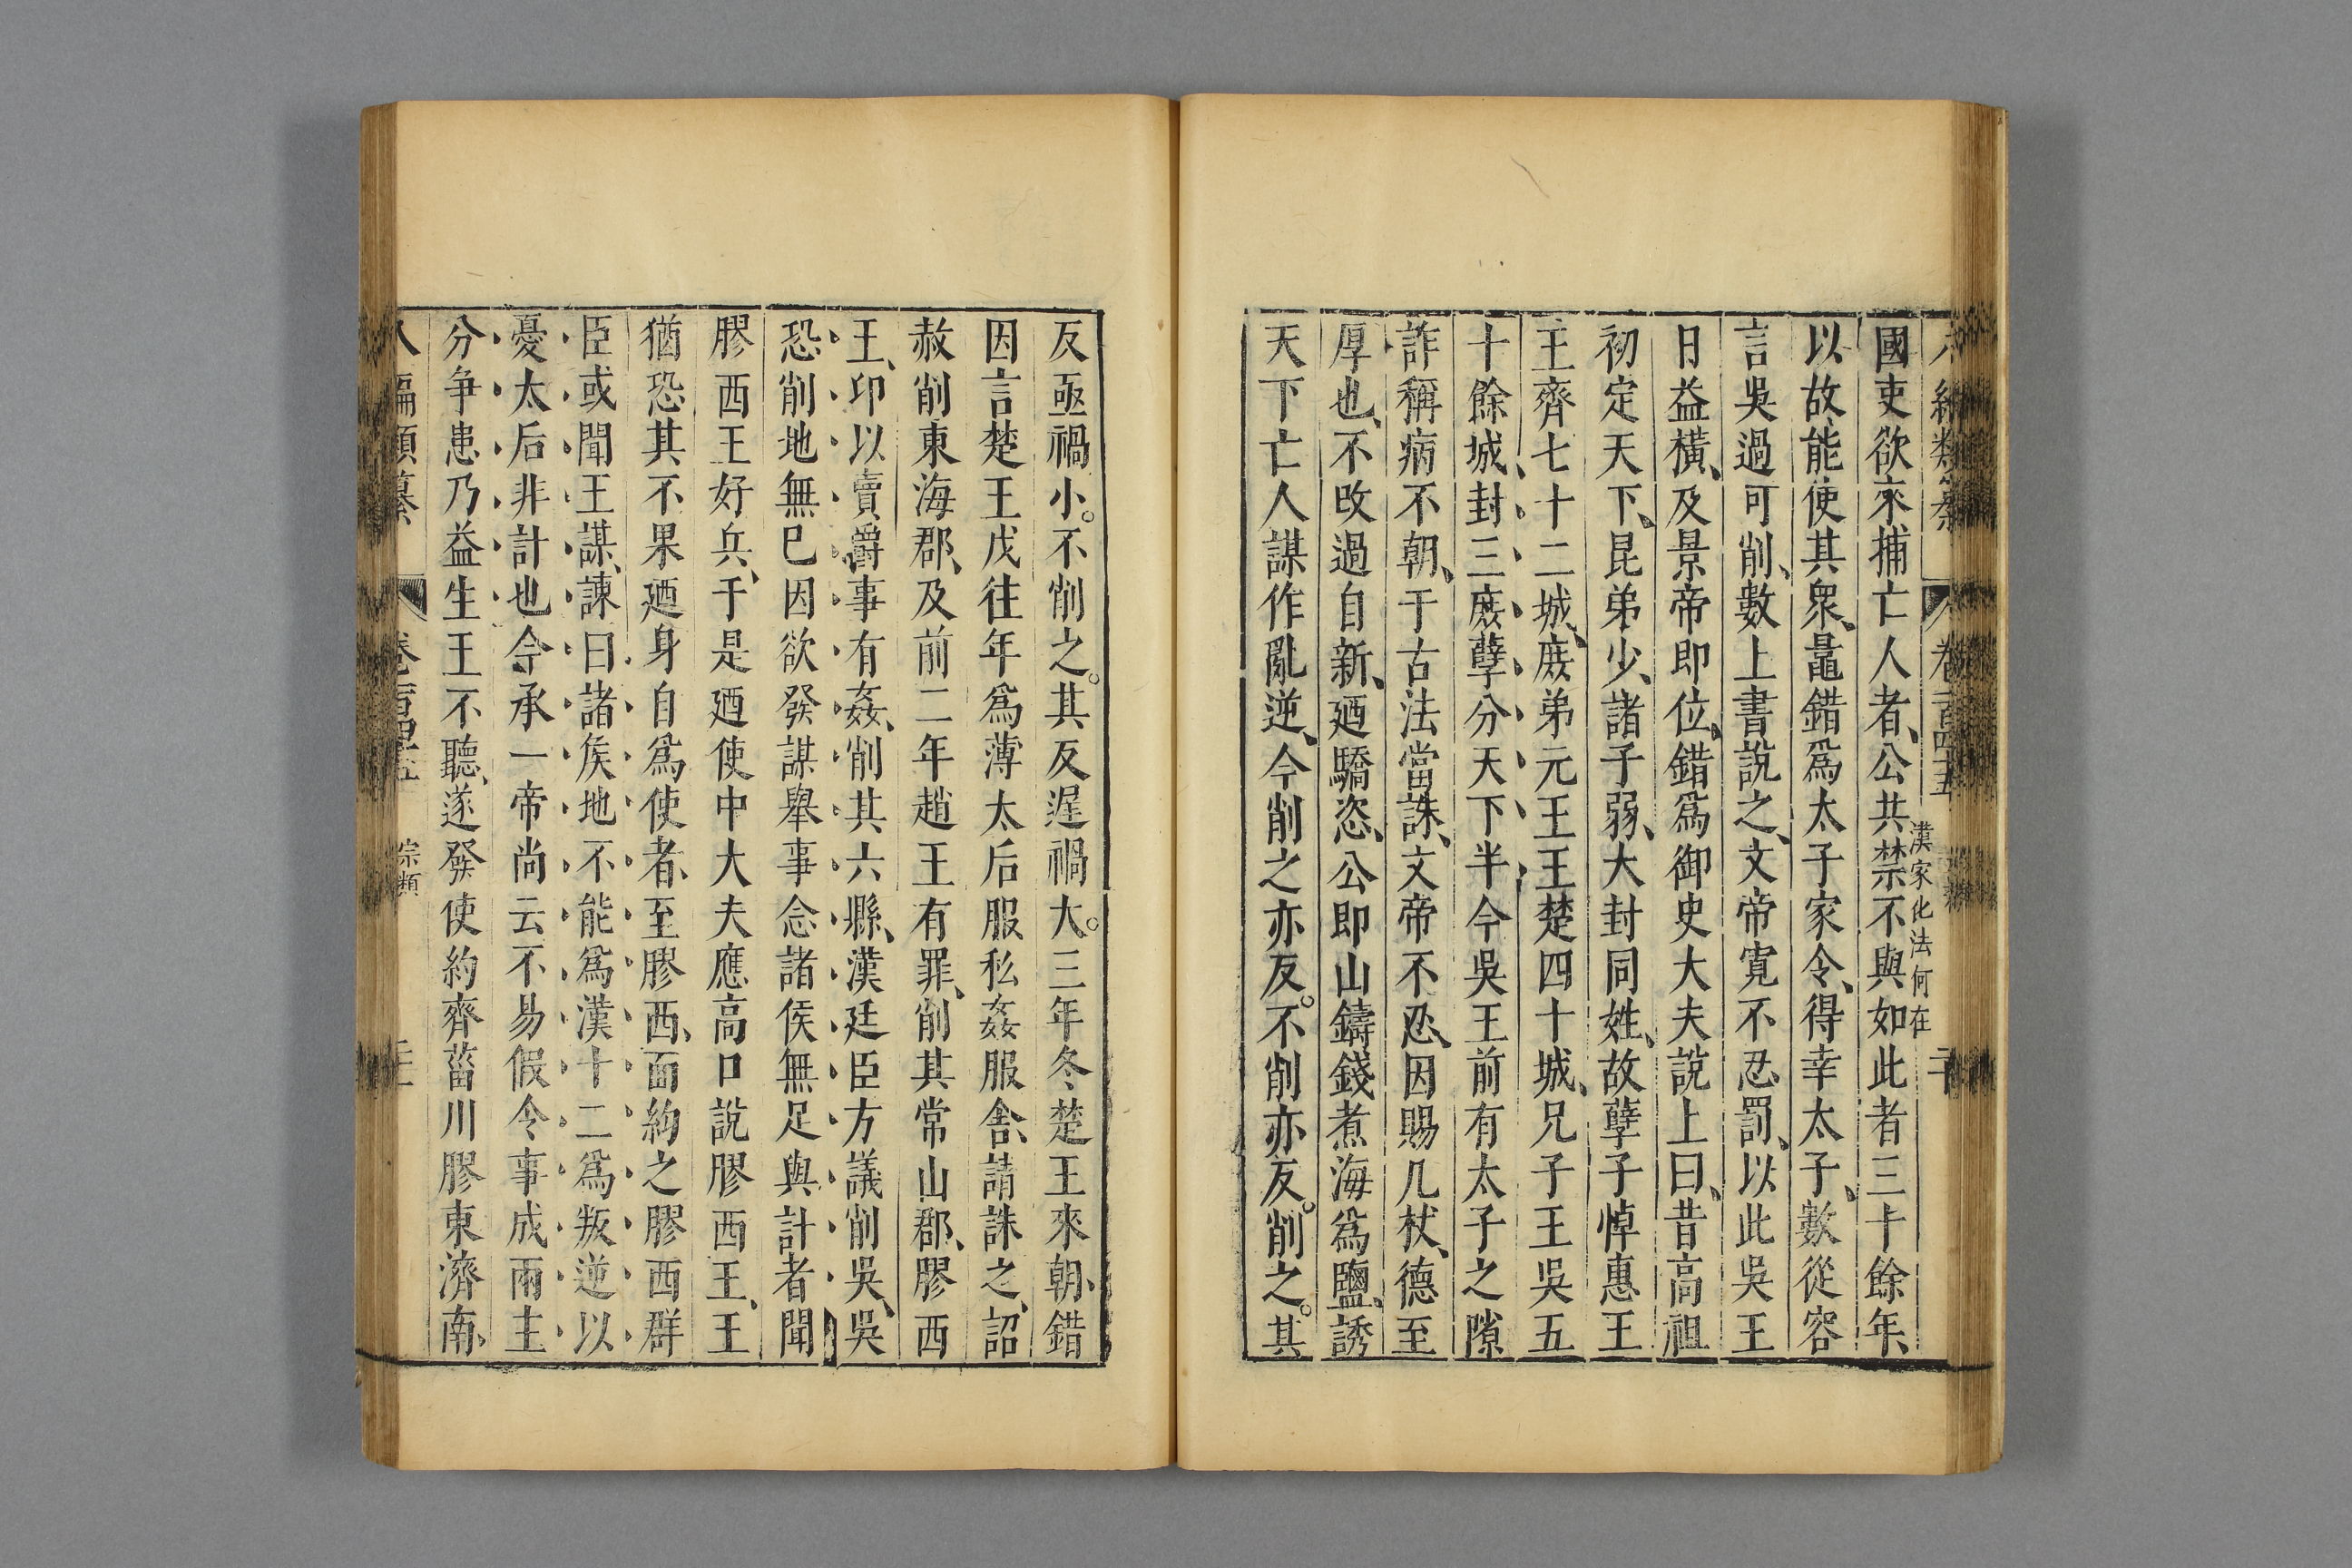 編類纂 卷一百四十五 二十
漢家化法何在
國吏欲來捕亡人者公共禁不與如此者三十餘年
以故能使其衆鼂錯爲太子家令得幸太子數從容
言吳過可削數上書說之文帝寬不忍罰以此吳王
日益橫及景帝即位錯爲御史大夫說上曰昔高祖
初定天下昆弟少諸子弱大封同姓故孽子悼惠王
王齊七十二城庶弟元王王楚四十城兄子王吳五
十餘城封三庶孽分天下半今吳王前有太子之隙
詐稱病不朝于古法當誅文帝不忍因賜几杖德至
厚也不改過自新廼驕恣公即山鑄錢煮海爲鹽誘
天下亡人謀作亂逆今削之亦反。不削亦反。削之。其
反亟禍小。不削之。其反遲禍大。三年冬楚王來朝錯
因言楚王戊往年爲薄太后服私姦服舍請誅之詔
赦削東海郡及前二年趙王有罪削其常山郡膠西
王卬以賣爵事有姦削其六縣漢廷臣方議削吳吳
恐削地無已因欲發謀舉事念諸侯無足與計者聞
膠西王好兵于是廼使中大夫應高口說膠西王王
猶恐其不果廼身自爲使者至膠西面約之膠西群
臣或聞王謀諫曰諸侯地不能爲漢十二爲叛逆以
憂太后非計也今承一帝尚云不易假令事成兩主
分争患乃益生王不聽遂發使約齊菑川膠東濟南
八編類纂 卷一百四十五 宗類